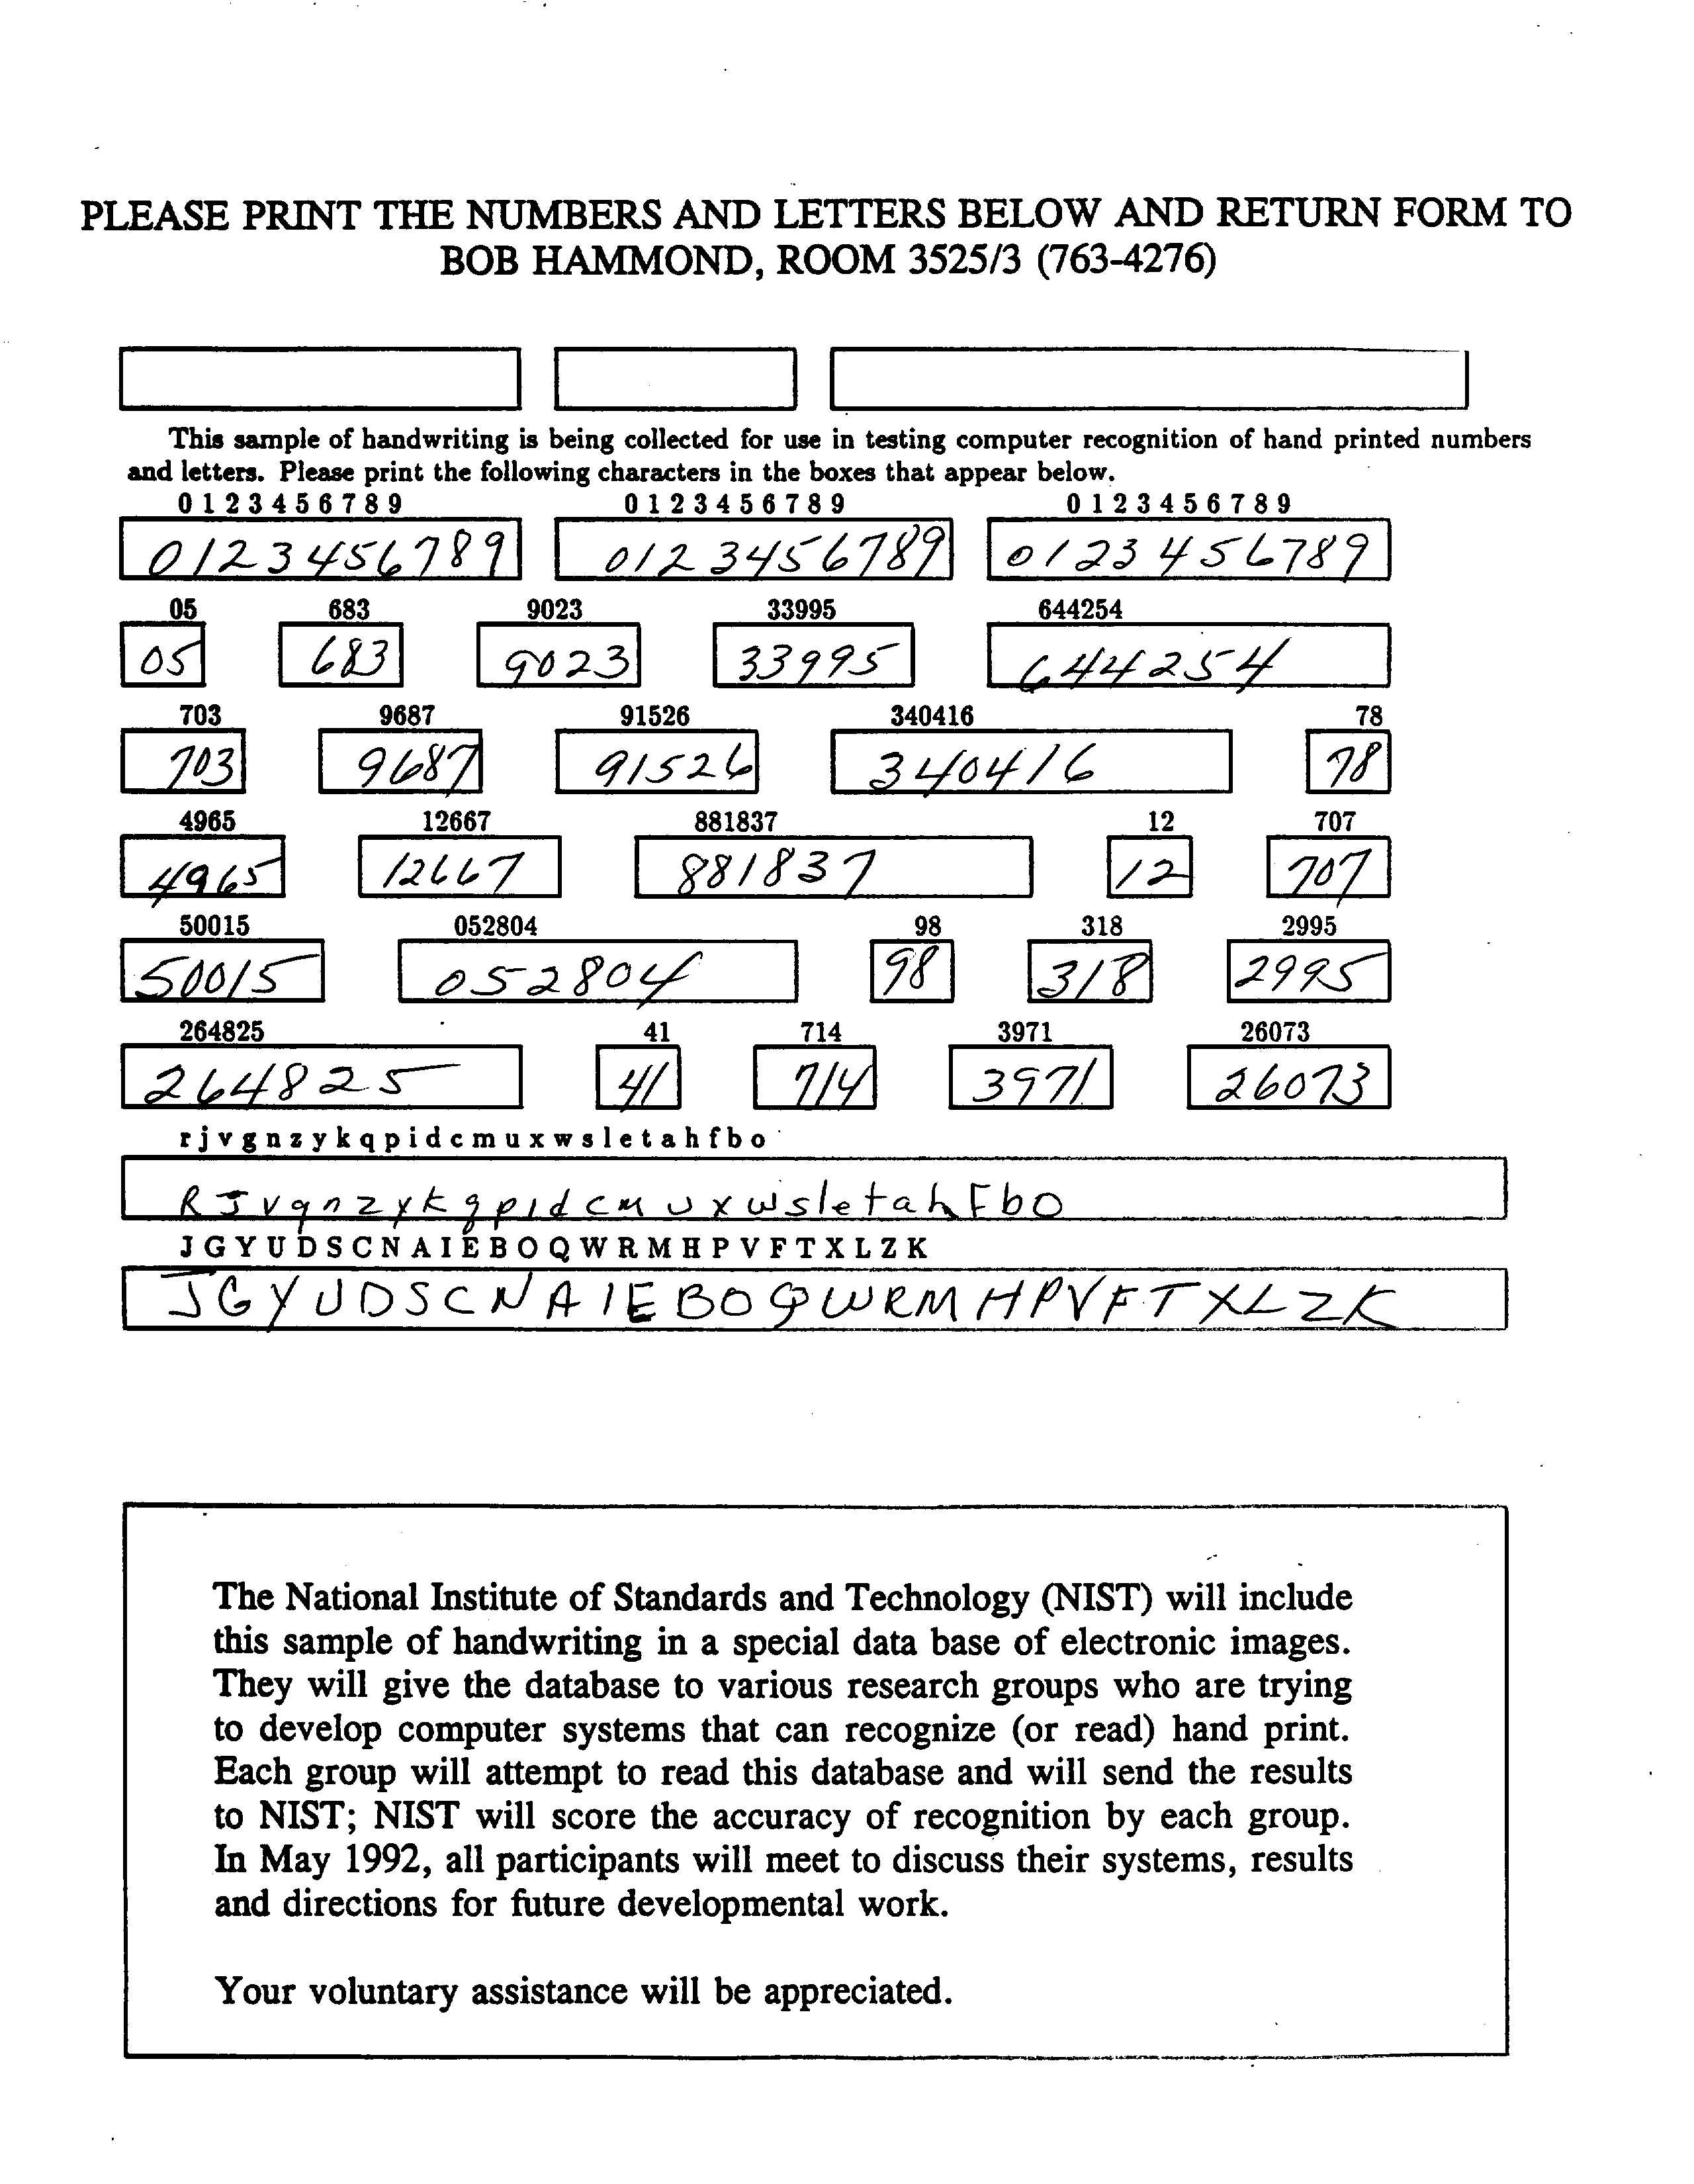 PLEASE PRINT THE NUMBERS AND LETTERS BELOW AND RETURN FORM TO
BOB HAMMOND, ROOM 3525/3 (763-4276)
This sample of handwriting is being collected for use in testing computer recognition of hand printed numbers
and letters. Please print the following characters in the boxes that appear below.
0 1 2 3 4 5 6 7 8 9 0 1 2 3 4 5 6 7 8 9 0 1 2 3 4 5 6 7 8 9
0123456789 0123456789 0123456789
05 683 9023 33995 644254
05 683 9023 33995 644254
703 9687 91526 340416 78
703 9687 91526 340416 78
4965 12667 881837 12 707
4965 12667 881837 12 707
50015 052804 98 318 2995
50015 052804 98 318 2995
264825 41 714 3971 26073
264825 41 714 3971 26073
r j v g n z y k q p i d c m u x w s l e t a h f b o
R J v q n z y k q p i d c m u x w s l e t a h F b O
J G Y U D S C N A I E B O Q W R M H P V F T X L Z K
J G Y U D S C N A I E B O Q W R M H P V F T X L Z K
The National Institute of Standards and Technology (NIST) will include
this sample of handwriting in a special data base of electronic images.
They will give the database to various research groups who are trying
to develop computer systems that can recognize (or read) hand print.
Each group will attempt to read this database and will send the results
to NIST; NIST will score the accuracy of recognition by each group.
In May 1992, all participants will meet to discuss their systems, results
and directions for future developmental work.
Your voluntary assistance will be appreciated.